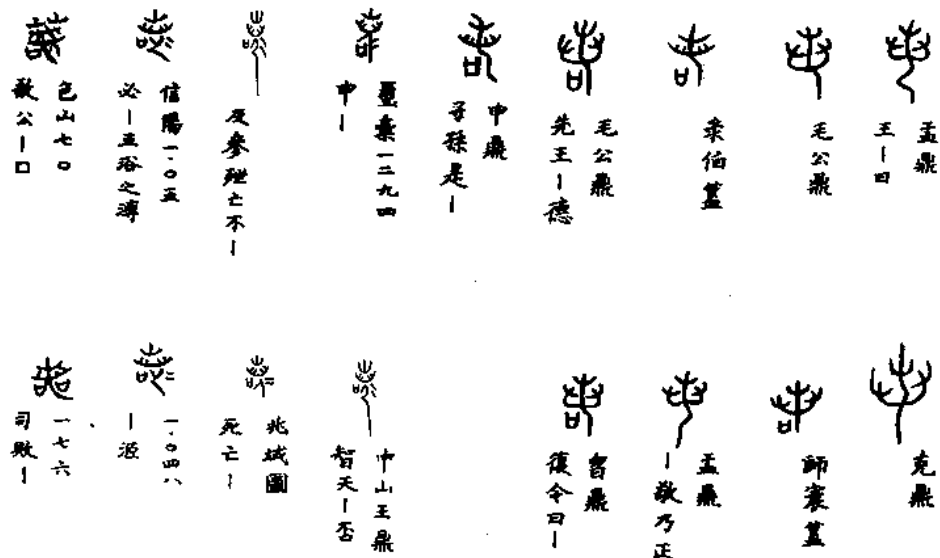 盂鼎
王｜曰
毛公鼎
彔伯簋
毛公鼎
先王｜德
中鼎
子孫是｜
璽彙一二九四
申｜
及參殜亡不｜
信陽一·〇五
必｜五浴之溥
包山七〇
公｜□
克鼎
師寰簋
盂鼎
｜敬乃正
曶鼎
復令曰｜
中山王鼎
智天｜否
兆域圖
死亡｜
一·〇四八
一七六
司敗｜